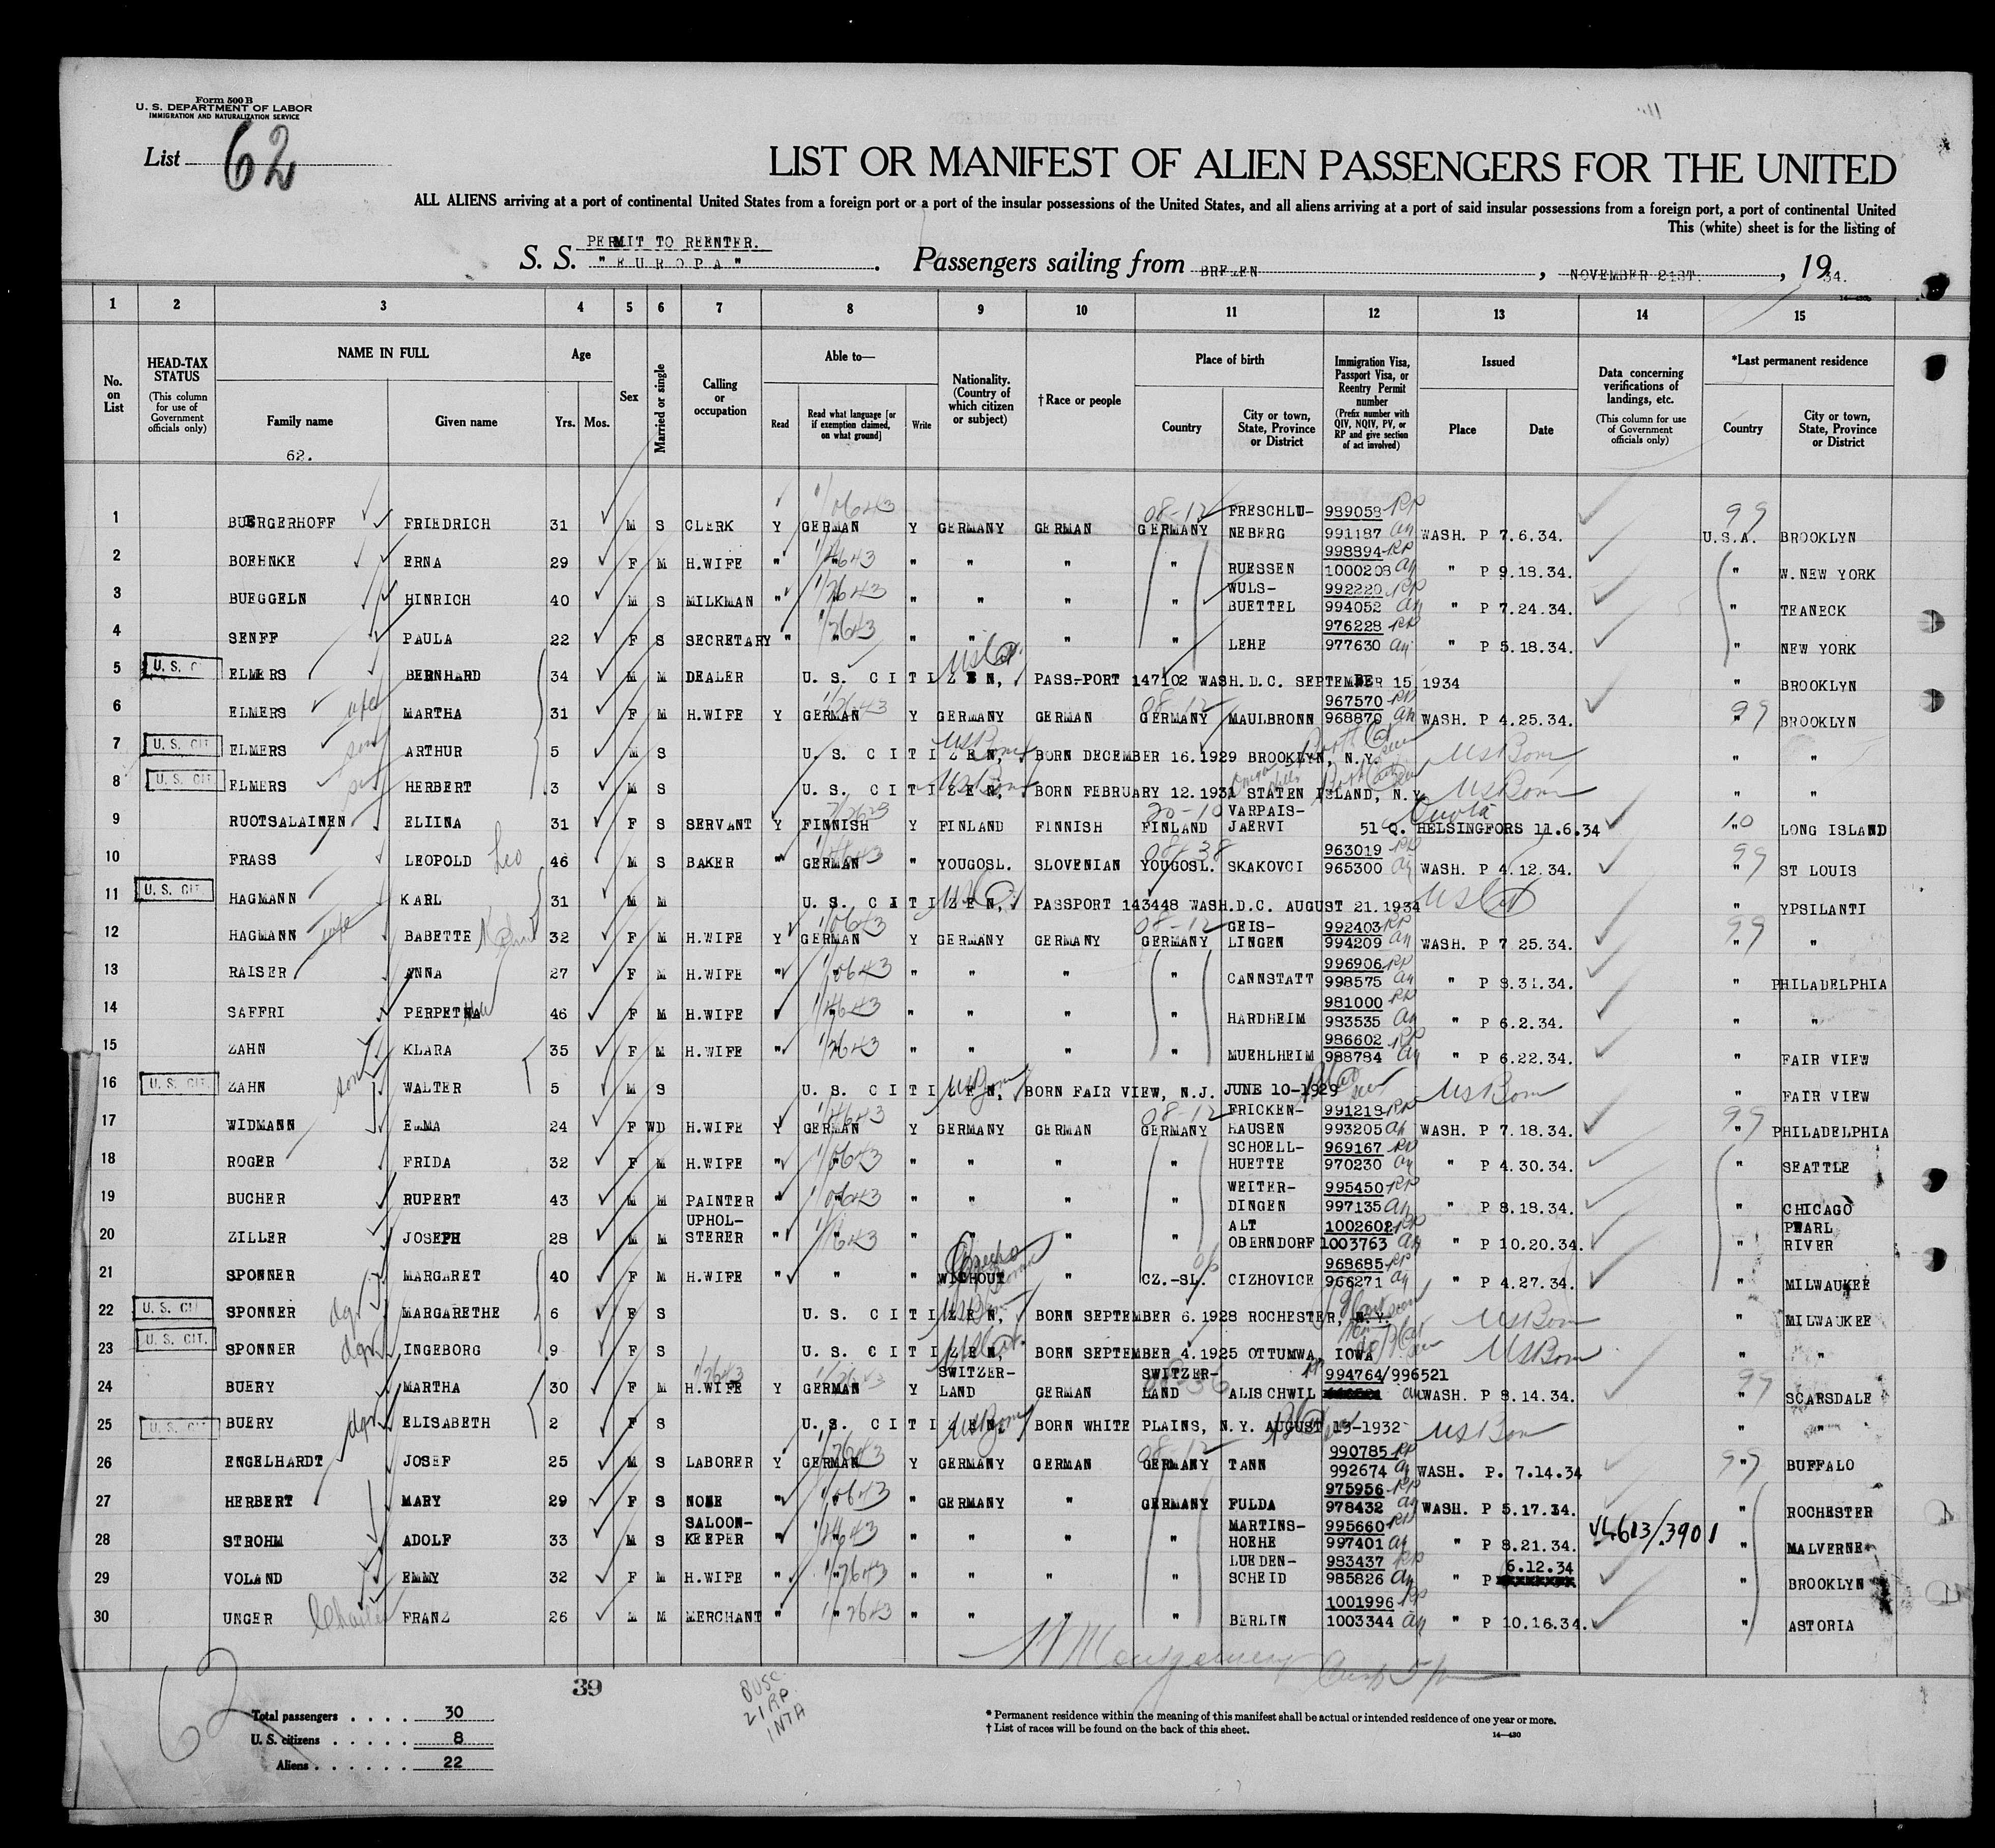 Form 500 B
U. S. DEPARTMENT OF LABOR
IMMIGRATION AND NATURALIZATION SERVICE
List 62
LIST OR MANIFEST OF ALIEN PASSENGERS FOR THE UNITED
ALL ALIENS arriving at a port of continental United States from a foreign port or a port of the insular possessions of the United States, and all aliens arriving at a port of said insular possessions from a foreign port, a port of continental United
This (white) sheet is for the listing of
PERMIT TO REENTER.
S. S. "EUROPA". Passengers sailing from BREMEN, NOVEMBER 21ST., 1934.
1 2 3 4 5 6 7 8 9 10 11 12 13 14 15
No. on List
HEAD-TAX STATUS (This column for use of Government officials only)
NAME IN FULL
Family name
Given name
62.
Age
Yrs. Mos.
Sex
Married or single
Calling or occupation
Able to—
Read
Read what language [or if exemption claimed, on what ground]
Write
Nationality. (Country of which citizen or subject)
†Race or people
Place of birth
Country
City or town, State, Province or District
Immigration Visa, Passport Visa, or Reentry Permit number (Prefix number with QIV, NQIV, PV, or RP and give section of act involved)
Issued
Place
Date
Data concerning verifications of landings, etc. (This column for use of Government officials only)
*Last permanent residence
Country
City or town, State, Province or District
1 BUERGERHOFF FRIEDRICH 31 M S CLERK Y GERMAN Y GERMANY GERMAN 08-12 GERMANY FRESCHLU-NEBERG 989058 RP 991187 WASH. P 7.6.34. 99 U.S.A. BROOKLYN
2 BOEHNKE ERNA 29 F M H.WIFE " " " " " " RUESSEN 998894 RP 1000208 " P 9.18.34. " W.NEW YORK
3 BUEGGELN HINRICH 40 M S MILKMAN " " " " " " WULS-BUETTEL 992220 RP 994052 " P 7.24.34. " TEANECK
4 SENFF PAULA 22 F S SECRETARY " " " " " " LEHE 976228 RP 977630 " P 5.18.34. " NEW YORK
5 U. S. CIT ELMERS BERNHARD 34 M M DEALER U. S. CITIZEN, PASS-PORT 147102 WASH.D.C. SEPTEMBER 15 1934 " BROOKLYN
6 ELMERS wife MARTHA 31 F M H.WIFE Y GERMAN Y GERMANY GERMAN 08-12 GERMANY MAULBRONN 967570 RP 968870 WASH. P 4.25.34. 99 " BROOKLYN
7 U. S. CIT ELMERS son ARTHUR 5 M S U. S. CITIZEN, US Born BORN DECEMBER 16.1929 BROOKLYN, N.Y. US Born " "
8 U. S. CIT ELMERS son HERBERT 3 M S U. S. CITIZEN, US Born BORN FEBRUARY 12.1931 STATEN ISLAND, N.Y. US Born " "
9 RUOTSALAINEN ELIINA 31 F S SERVANT Y FINNISH Y FINLAND FINNISH 20-10 FINLAND VARPAIS-JAERVI 51 Q. Quota HELSINGFORS 11.6.34 10 " LONG ISLAND
10 FRASS LEOPOLD Leo 46 M S BAKER " GERMAN " YOUGOSL. SLOVENIAN 08-38 YOUGOSL. SKAKOVCI 963019 RP 965300 WASH. P 4.12.34. 99 " ST LOUIS
11 U. S. CIT HAGMANN KARL 31 M M U. S. CITIZEN, PASSPORT 143448 WASH.D.C. AUGUST 21.1934 " YPSILANTI
12 HAGMANN wife BABETTE 32 F M H.WIFE Y GERMAN Y GERMANY GERMANY 08-12 GERMANY GEIS-LINGEN 992403 RP 994209 WASH. P 7.25.34. 99 " "
13 RAISER ANNA 27 F M H.WIFE " " " " " " CANNSTATT 996906 RP 998575 " P 8.31.34. " PHILADELPHIA
14 SAFFRI PERPETNA 46 F M H.WIFE " " " " " HARDHEIM 981000 RP 983535 " P 6.2.34. " "
15 ZAHN KLARA 35 F M H.WIFE " " " " " " MUEHLHEIM 986602 RP 988784 " P 6.22.34. " FAIR VIEW
16 U. S. CIT. ZAHN son WALTER 5 M S U. S. CITIZEN, US Born BORN FAIR VIEW, N.J. JUNE 10-1929 US Born " FAIR VIEW
17 WIDMANN EMMA 24 F WD H.WIFE Y GERMAN Y GERMANY GERMAN 08-12 GERMANY FRICKEN-HAUSEN 991218 RP 993205 WASH. P 7.18.34. 99 " PHILADELPHIA
18 ROGER FRIDA 32 F M H.WIFE " " " " " " SCHOELL-HUETTE 969167 RP 970230 " P 4.30.34. " SEATTLE
19 BUCHER RUPERT 43 M M PAINTER " " " " " " WEITER-DINGEN 995450 RP 997135 " P 8.18.34. " CHICAGO
20 ZILLER JOSEPH 28 M M UPHOL-STERER " " " " " " ALT OBERNDORF 1002602 RP 1003763 " P 10.20.34. " PEARL RIVER
21 SPONNER MARGARET 40 F M H.WIFE " " " WITHOUT " CZ.-SL. CIZHOVICE 968685 RP 966271 " P 4.27.34. " MILWAUKEE
22 U. S. CIT SPONNER dgr MARGARETHE 6 F S U. S. CITIZEN, US Born BORN SEPTEMBER 6.1928 ROCHESTER, N.Y. US Born " MILWAUKEE
23 U. S. CIT. SPONNER dgr INGEBORG 9 F S U. S. CITIZEN, BORN SEPTEMBER 4.1925 OTTUMWA, IOWA US Born " "
24 BUERY MARTHA 30 F M H.WIFE Y GERMAN Y SWITZER-LAND GERMAN SWITZER-LAND ALISCHWIL 994764/996521 WASH. P 8.14.34. 99 " SCARSDALE
25 U. S. CIT BUERY dgr ELISABETH 2 F S U. S. CITIZEN, US Born BORN WHITE PLAINS, N.Y. AUGUST 13-1932 US Born " "
26 ENGELHARDT JOSEF 25 M S LABORER Y GERMAN Y GERMANY GERMAN 08-12 GERMANY TANN 990785 RP 992674 WASH. P. 7.14.34 99 " BUFFALO
27 HERBERT MARY 29 F S NONE " " " GERMANY " GERMANY FULDA 975956 RP 978432 WASH. P 5.17.34. " ROCHESTER
28 STROHM ADOLF 33 M S SALOON-KEEPER " " " " " " MARTINS-HOEHE 995660 RP 997401 " P 8.21.34. " MALVERNE
29 VOLAND EMMY 32 F M H.WIFE " " " " " " LUEDEN-SCHEID 983437 RP 985826 " P 6.12.34 " BROOKLYN
30 UNGER Charles FRANZ 26 M M MERCHANT " " " " " " BERLIN 1001996 RP 1003344 " P 10.16.34. " ASTORIA
62
39
8 USC
21 RP
1 NTA
Total passengers . . . . 30
U. S. citizens . . . . . 8
Aliens . . . . . . 22
* Permanent residence within the meaning of this manifest shall be actual or intended residence of one year or more.
† List of races will be found on the back of this sheet.
14—430